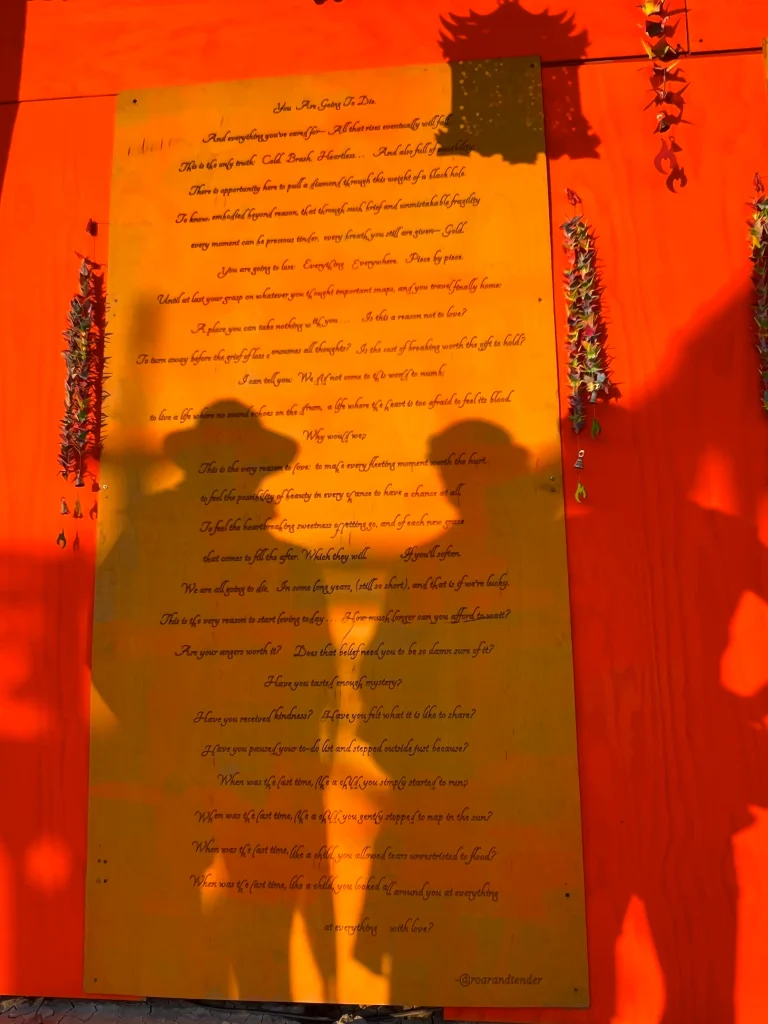 You Are Going To Die.
And everything you've cared for— All that rises eventually will fall.
This is the only truth. Cold. Brash. Heartless... And also full of possibility.
There is opportunity here to pull a diamond through this weight of a black hole.
To know, embodied beyond reason, that through such brief and unmistakable fragility
every moment can be precious tinder, every breath you still are given— Gold.
You are going to lose. Everything. Everywhere. Piece by piece.
Until at last your grasp on whatever you thought important snaps, and you travel finally home:
A place you can take nothing with you.... Is this a reason not to love?
To turn away before the grief of loss consumes all thoughts? Is the cost of breaking worth the gift to hold?
I can tell you: We did not come to this world to numb;
to live a life where no sound echoes on the drum, a life where the heart is too afraid to feel its blood.
Why would we?
This is the very reason to love: to make every fleeting moment worth the hurt.
to feel the possibility of beauty in every chance to have a chance at all,
To feel the heartbreaking sweetness of letting go, and of each new grace
that comes to fill the after. Which they will. If you'll soften.
We are all going to die. In some long years, (still so short), and that is if we're lucky.
This is the very reason to start loving today.... How much longer can you afford to wait?
Are your angers worth it? Does that belief need you to be so damn sure of it?
Have you tasted enough mystery?
Have you received kindness? Have you felt what it is like to share?
Have you paused your to-do list and stepped outside just because?
When was the last time, like a child, you simply started to run?
When was the last time, like a child, you gently stopped to nap in the sun?
When was the last time, like a child, you allowed tears unrestricted to flood?
When was the last time, like a child, you looked all around you at everything
at everything with love?
-@roarandtender